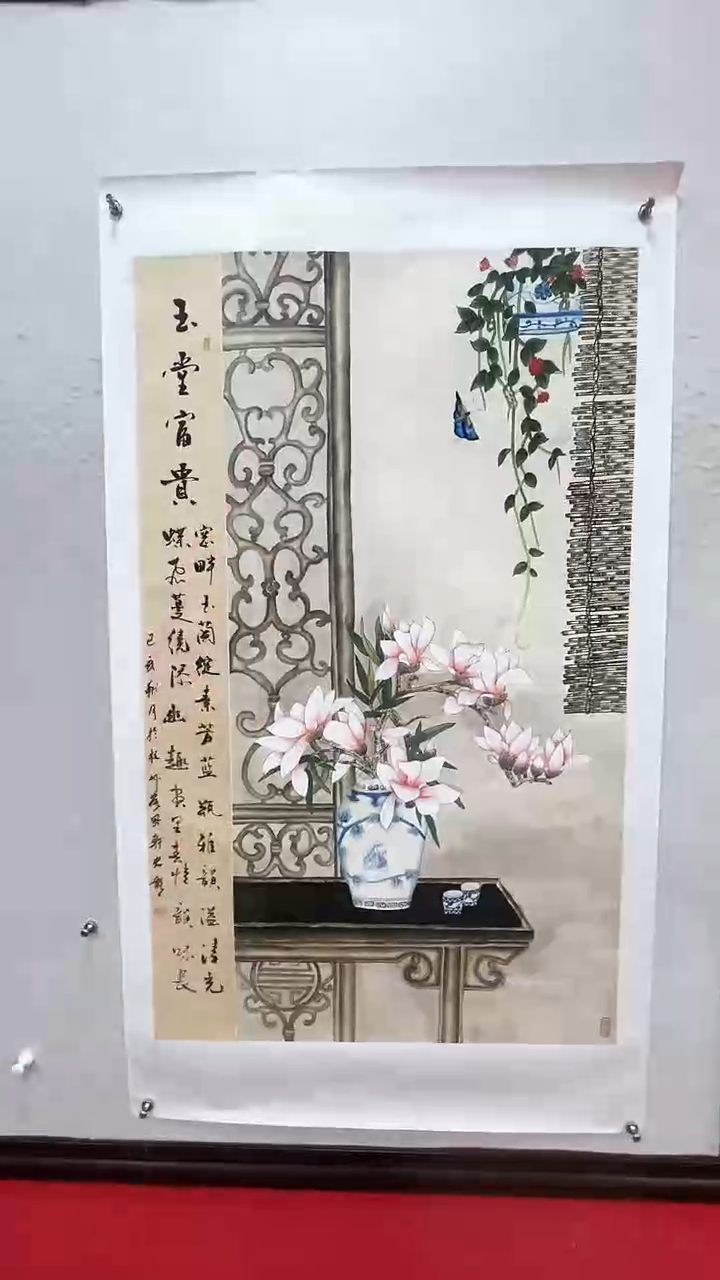 玉堂富貴
窓畔玉蘭綻素芳蓝瓶雅韻溢清光
蝶飛蔓繞添幽趣畫里春情韻味長
己亥秋月於杭州